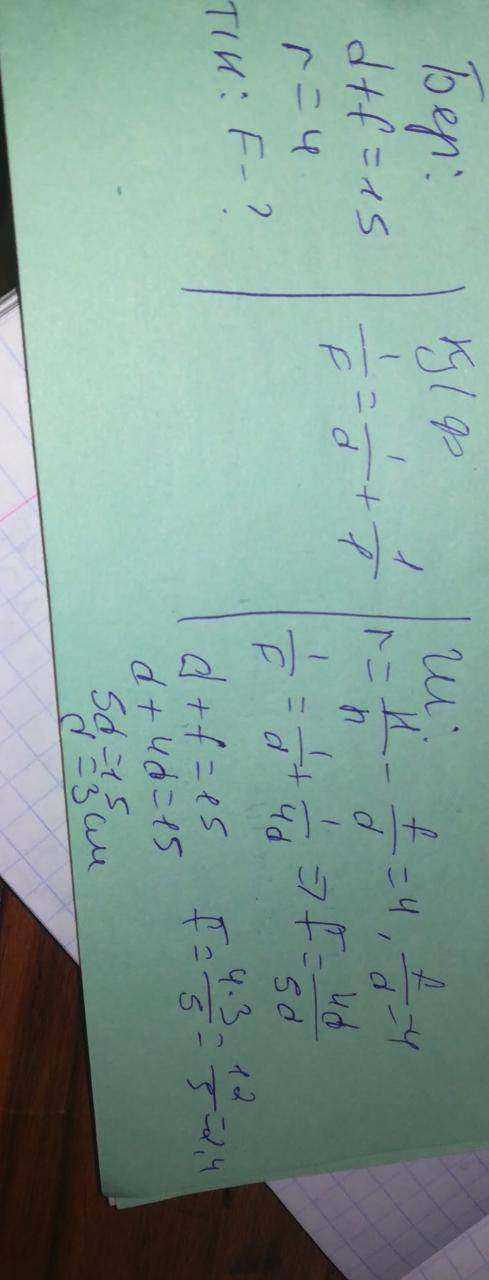 Бер:
d+f=15
r=4
Т/к: F-?
Қ/ф
1/F = 1/d + 1/f
Ш:
r = H/h = f/d = 4, f/d = 4
1/F = 1/d + 1/4d ⇒ F = 4d/5d
d+f=15
d+4d=15
5d=15
d=3см
F = 4·3/5 = 12/5 = 2,4